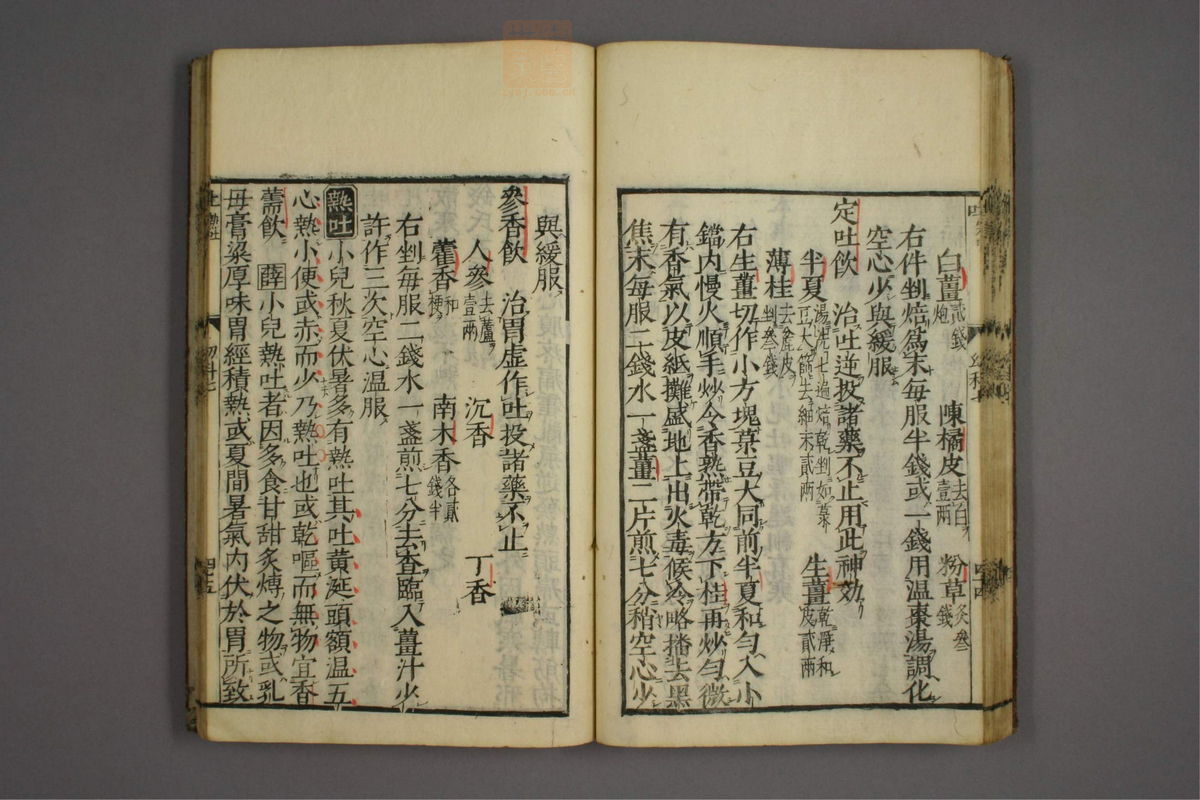 白薑貳錢炮 陳橘皮去白壹兩 粉草炙叁錢
右件剉焙為末每服半錢或一錢用温棗湯調化
空心少與緩服
定吐飲 治吐逆投諸藥不止用此神効
半夏湯洗七遍焙乾剉如菉豆大篩去細末貳兩 生薑乾淨和皮貳兩
薄桂去麄皮剉叁錢
右生薑切作小方塊菉豆大同前半夏和勻入小
鐺内慢火順手炒令香熟帶乾方下桂再炒勻微
有香氣以皮紙攤盛地上出火毒候冷略播去黑
焦末每服二錢水一盞薑二片煎七分稍空心少
與緩服
參香飲 治胃虛作吐投諸藥不止
人參去蘆壹兩 沉香 丁香
藿香和梗 南木香各貳錢半
右剉每服二錢水一盞煎七分去查臨入薑汁少
許作三次空心温服
熱吐小兒秋夏伏暑多有熱吐其吐黃涎頭額温五
心熱小便或赤而少乃熱吐也或乾嘔而無物宜香
薷飲 薛小兒熱吐者因多食甘甜炙煿之物或乳
母膏粱厚味胃經積熱或夏間暑氣内伏於胃所致
四十五